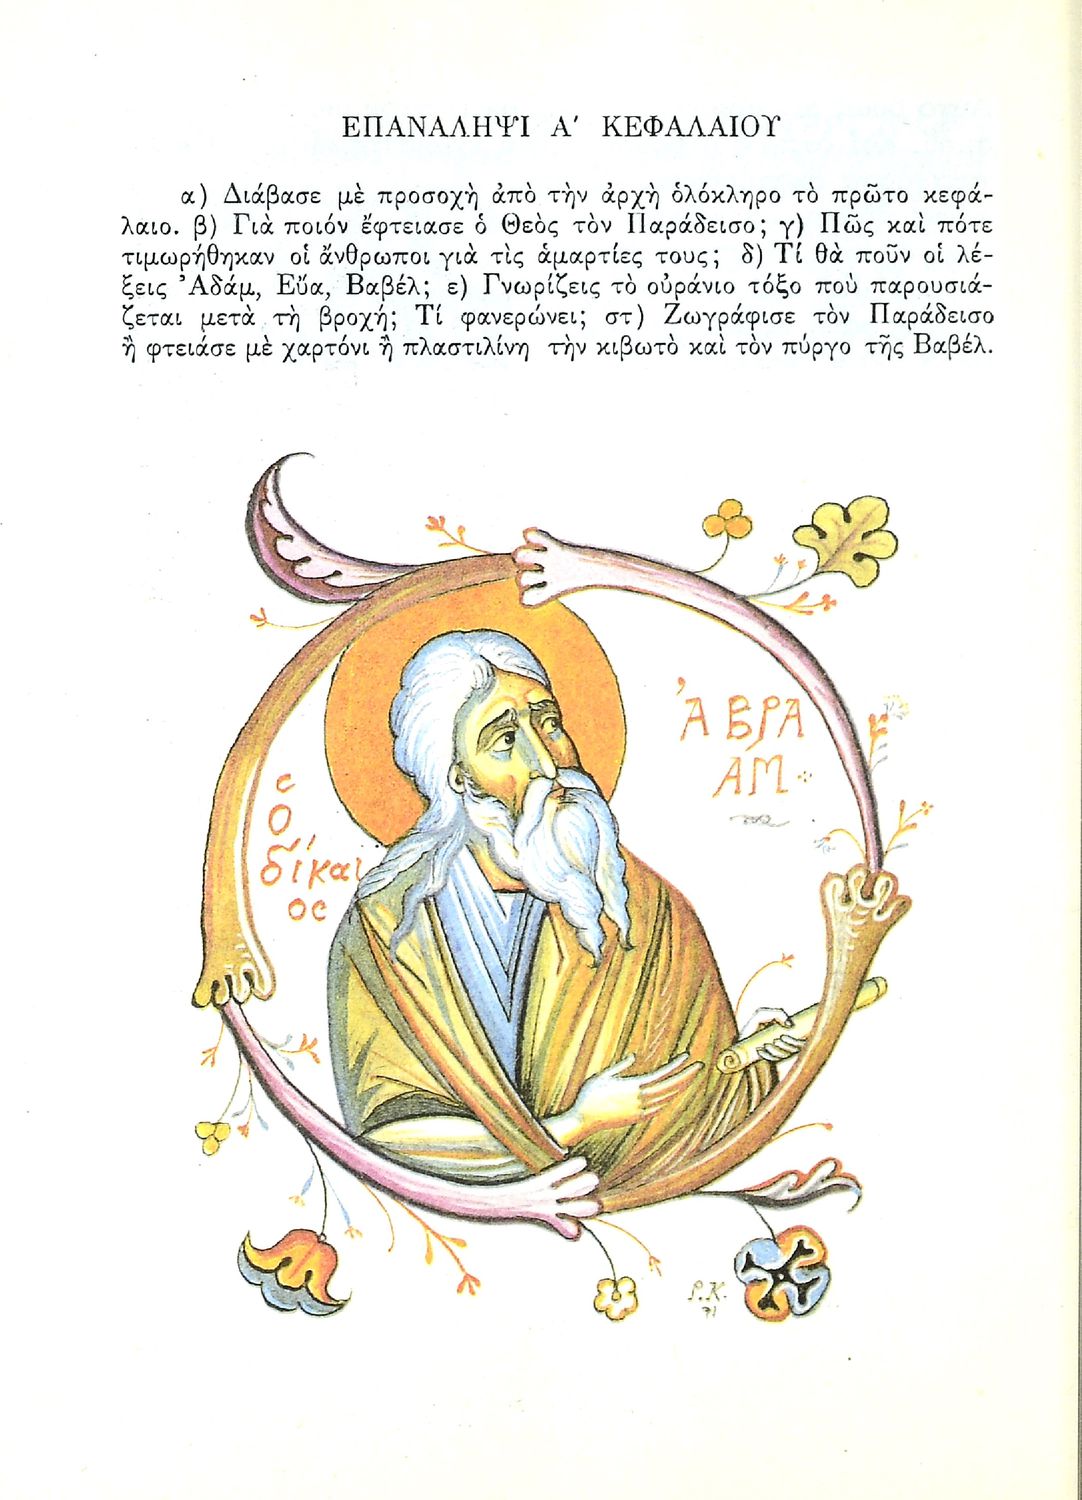 ΕΠΑΝΑΛΗΨΙ Α' ΚΕΦΑΛΑΙΟΥ
α) Διάβασε μὲ προσοχὴ ἀπὸ τὴν ἀρχὴ ὁλόκληρο τὸ πρῶτο κεφά-
λαιο. β) Γιὰ ποιόν ἔφτειασε ὁ Θεὸς τὸν Παράδεισο; γ) Πῶς καὶ πότε
τιμωρήθηκαν οἱ ἄνθρωποι γιὰ τὶς ἁμαρτίες τους; δ) Τί θὰ ποῦν οἱ λέ-
ξεις Ἀδάμ, Εὔα, Βαβέλ; ε) Γνωρίζεις τὸ οὐράνιο τόξο ποὺ παρουσιά-
ζεται μετὰ τὴ βροχή; Τί φανερώνει; στ) Ζωγράφισε τὸν Παράδεισο
ἢ φτειάσε μὲ χαρτόνι ἢ πλαστιλίνη τὴν κιβωτὸ καὶ τὸν πύργο τῆς Βαβέλ.
Ὁ
δίκαι
ος
ἈΒΡΑ
ΑΜ
Ρ.Κ.
71